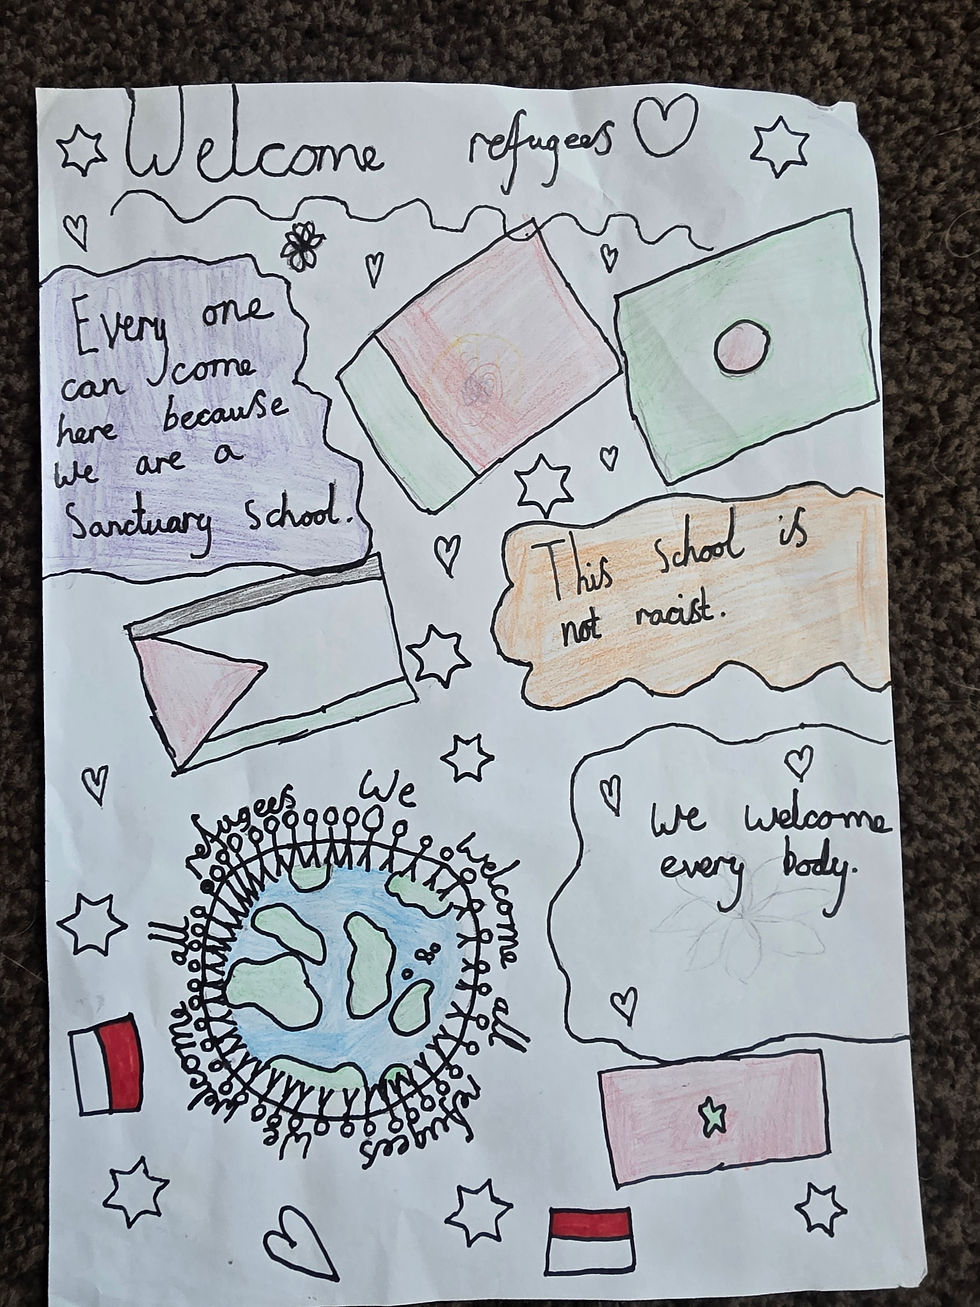 Welcome refugees
Every one
can come
here because
we are a
Sanctuary School.
This School is
not racist.
we welcome
every body.
We welcome all refugees We welcome all refugees